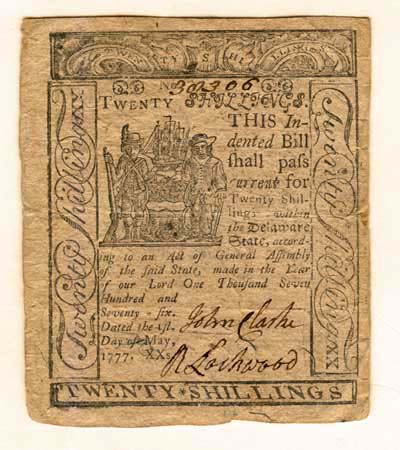 TWENTY SHILLINGS
No 30306
TWENTY SHILLINGS.
THIS In-
dented Bill
shall pass
current for
Twenty Shil-
lings within
the Delaware
State, accord-
ing to an Act of General Assembly
of the said State, made in the Year
of our Lord One Thousand Seven
Hundred and
Seventy-six.
Dated the 1st.
Day of May,
1777. XXs
John Clarke
R Lockwood
Twenty Shillings
Twenty Shillings XX
TWENTY SHILLINGS